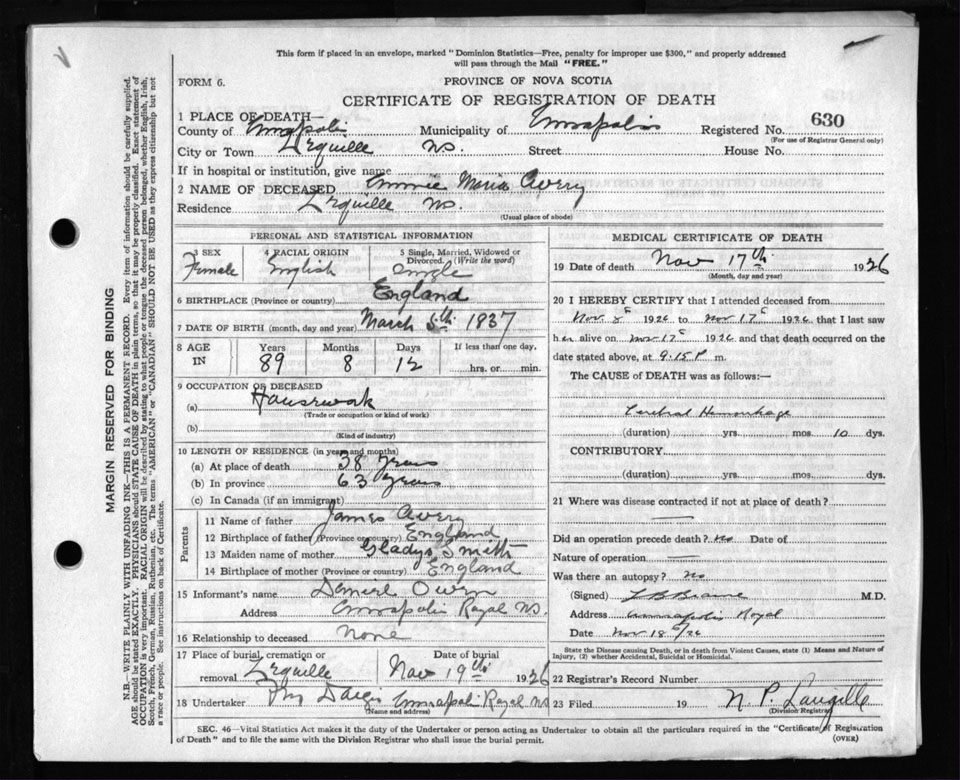 This form if placed in an envelope, marked "Dominion Statistics—Free, penalty for improper use $300," and properly addressed
will pass through the Mail "FREE."
FORM 6.
PROVINCE OF NOVA SCOTIA
CERTIFICATE OF REGISTRATION OF DEATH
1 PLACE OF DEATH—
County of Annapolis Municipality of Annapolis Registered No. 630
(For use of Registrar General only)
City or Town Lequille NS. Street House No.
If in hospital or institution, give name
2 NAME OF DECEASED Annie Maria Avery
Residence Lequille NS.
(Usual place of abode)
PERSONAL AND STATISTICAL INFORMATION
3 SEX 4 RACIAL ORIGIN 5 Single, Married, Widowed or
Divorced. (Write the word)
Female English Single
6 BIRTHPLACE (Province or country) England
7 DATE OF BIRTH (month, day and year) March 5th 1837
8 AGE Years Months Days If less than one day,
IN 89 8 12 hrs. or min.
9 OCCUPATION OF DECEASED
(a) Housework
(Trade or occupation or kind of work)
(b)
(Kind of industry)
10 LENGTH OF RESIDENCE (in years and months)
(a) At place of death 38 years
(b) In province 63 years
(c) In Canada (if an immigrant)
Parents
11 Name of father James Avery
12 Birthplace of father (Province or country) England
13 Maiden name of mother Gladys Smith
14 Birthplace of mother (Province or country) England
15 Informant's name Daniel Owen
Address Annapolis Royal NS.
16 Relationship to deceased None
17 Place of burial, cremation or Date of burial
removal Lequille Nov 19th 1926
18 Undertaker Annapolis Royal NS
(Name and address)
MEDICAL CERTIFICATE OF DEATH
19 Date of death Nov 17th 1926
(Month, day and year)
20 I HEREBY CERTIFY that I attended deceased from
Nov 8th 1926 to Nov 17th 1926 that I last saw
her alive on Nov 17th 1926 and that death occurred on the
date stated above, at 9.15 P m.
The CAUSE of DEATH was as follows:—
Cerebral Hemorrhage
(duration) yrs. mos. 10 dys.
CONTRIBUTORY
(duration) yrs. mos. dys.
21 Where was disease contracted if not at place of death?
Did an operation precede death? No Date of
Nature of operation
Was there an autopsy? No
(Signed) L B Braine M.D.
Address Annapolis Royal
Date Nov 18th/26
State the Disease causing Death, or in death from Violent Causes, state (1) Means and Nature of
Injury, (2) whether Accidental, Suicidal or Homicidal.
22 Registrar's Record Number
23 Filed 19 N. P. Langille
(Division Registrar)
SEC. 46—Vital Statistics Act makes it the duty of the Undertaker or person acting as Undertaker to obtain all the particulars required in the "Certificate of Registration
of Death" and to file the same with the Division Registrar who shall issue the burial permit. (OVER)
MARGIN RESERVED FOR BINDING
N.B.—WRITE PLAINLY WITH UNFADING INK—THIS IS A PERMANENT RECORD. Every item of information should be carefully supplied.
AGE should be stated EXACTLY. PHYSICIANS should STATE CAUSE OF DEATH in plain terms, so that it may be properly classified. Exact statement of
OCCUPATION is very important. RACIAL ORIGIN will be described by stating to what people or tongue the deceased person belonged, whether English, Irish,
Scotch, French, German, Russian, Ruthenian, etc. The terms "AMERICAN" or "CANADIAN" SHOULD NOT BE USED as they express citizenship but not
a race or people. See instructions on back of Certificate.